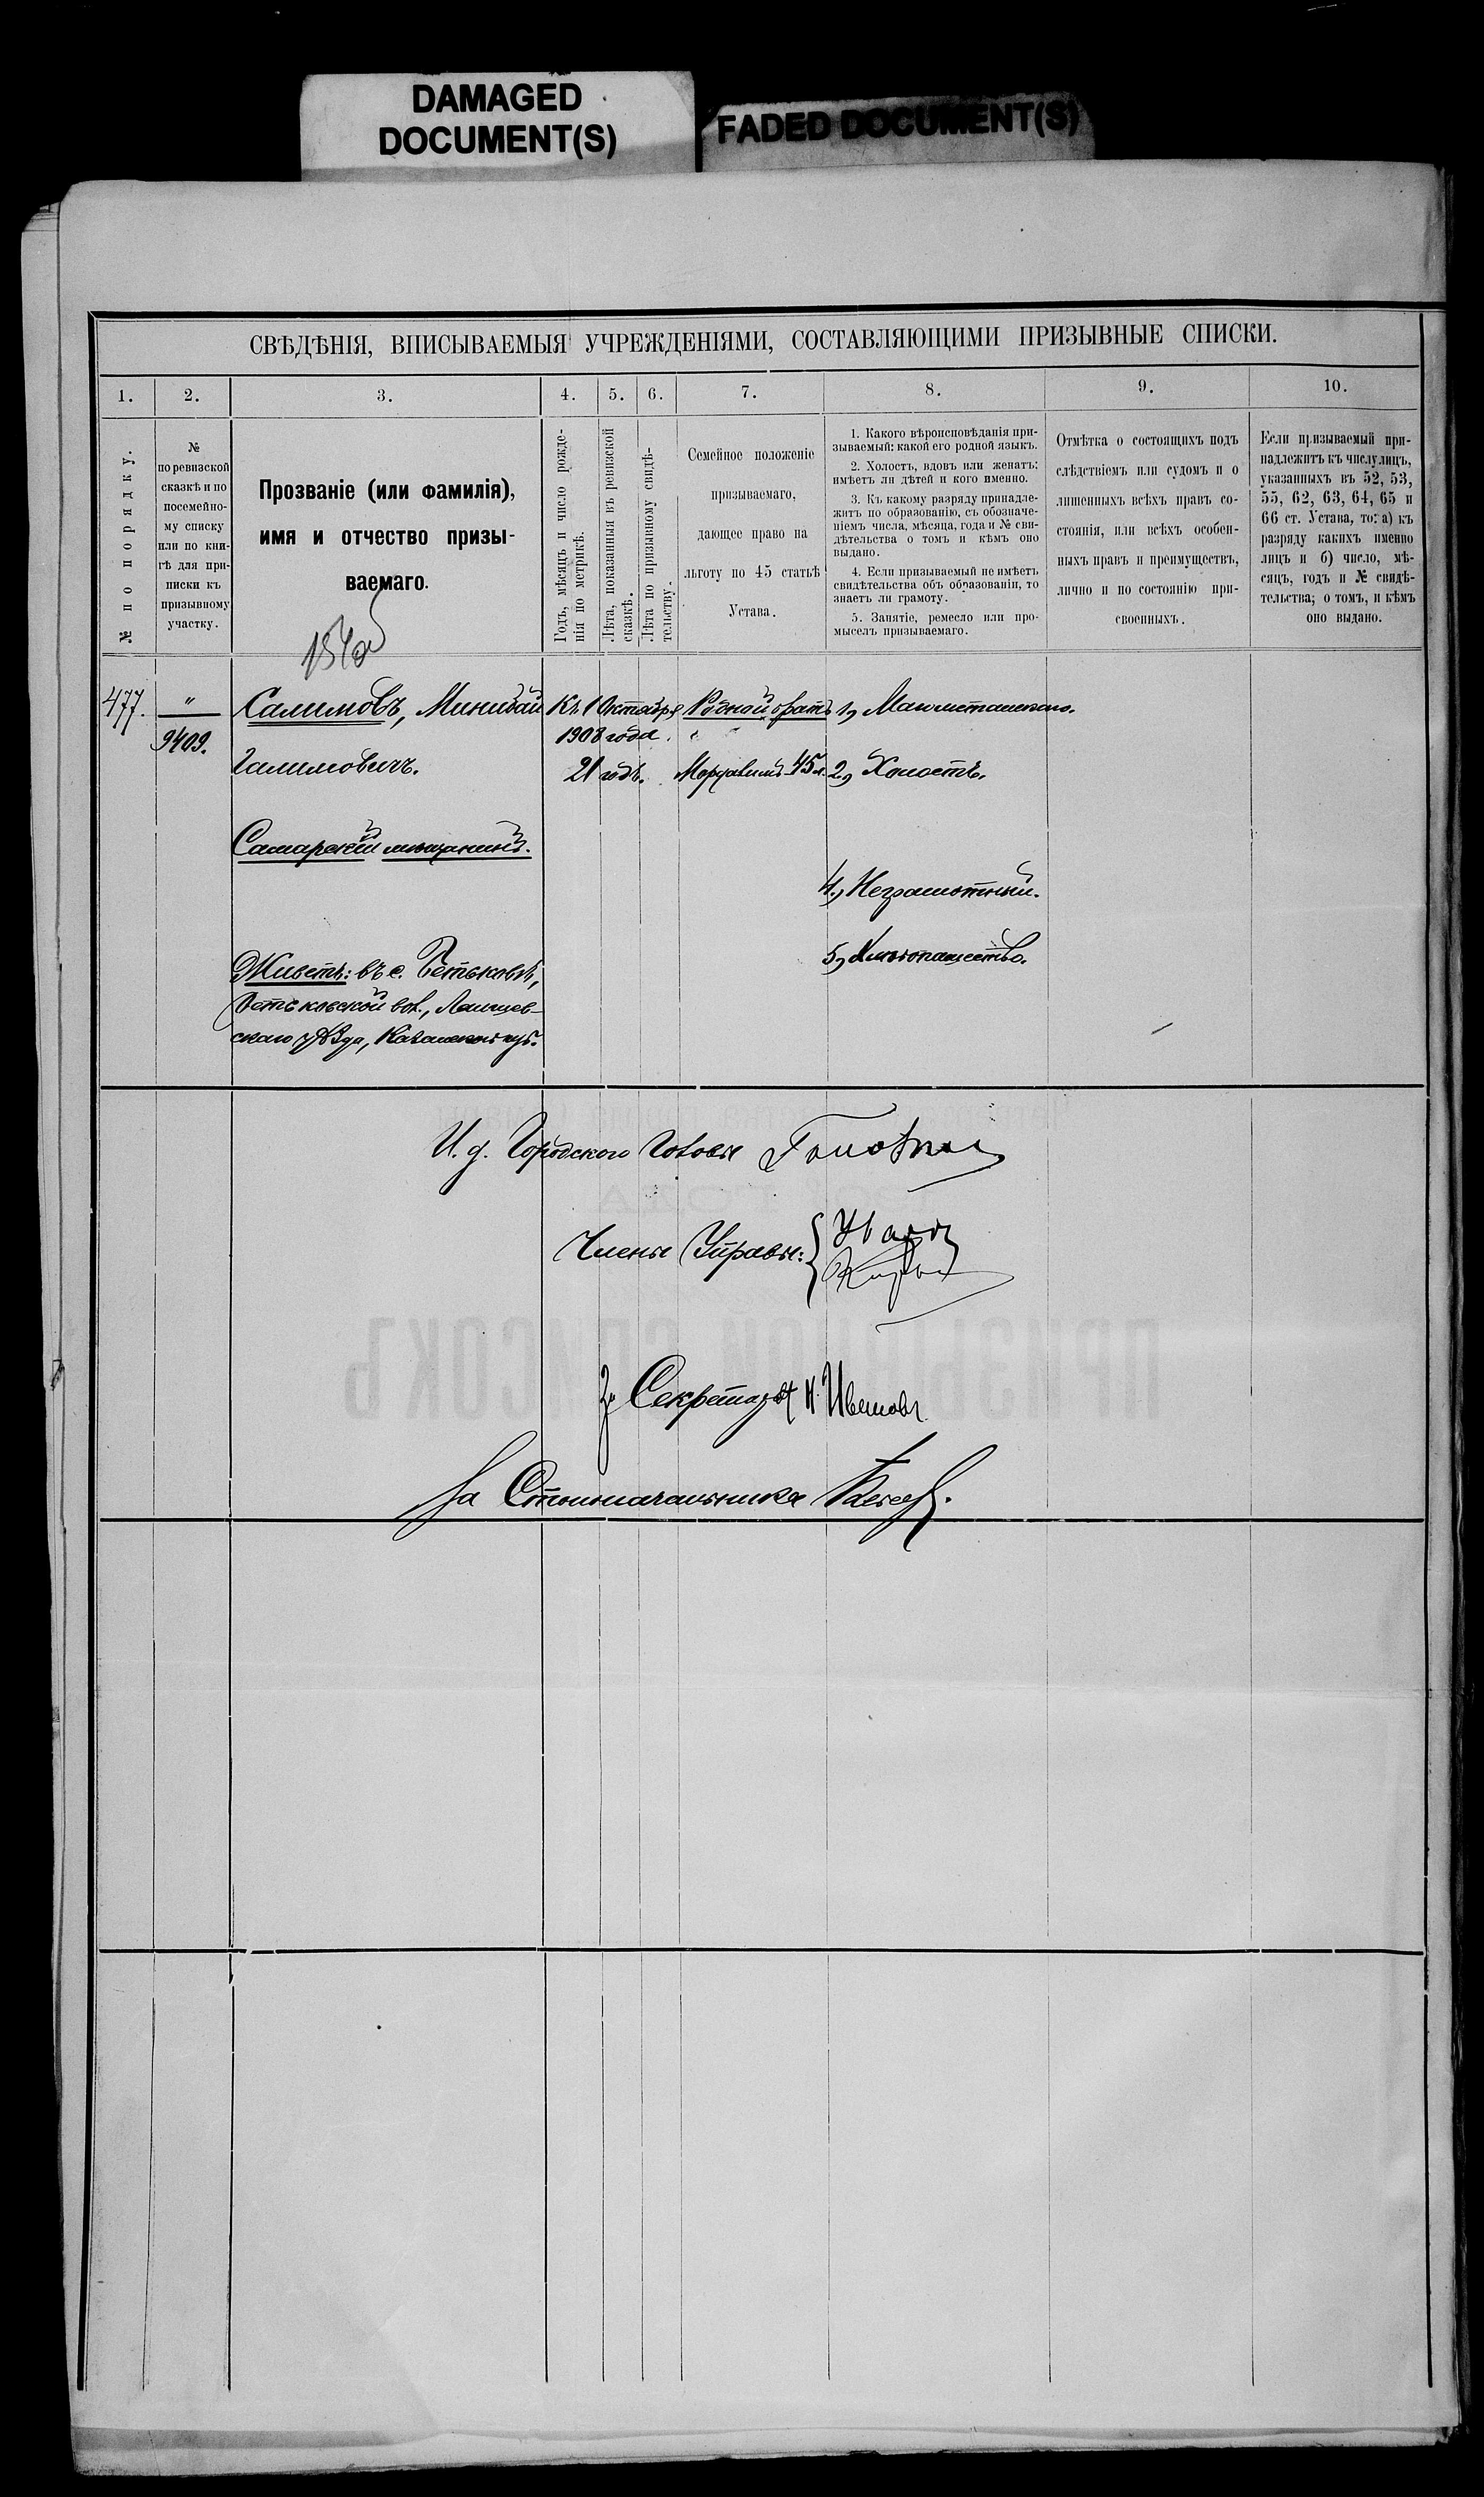 DAMAGED
DOCUMENT(S)
FADED DOCUMENT(S)
СВѢДѢНІЯ, ВПИСЫВАЕМЫЯ УЧРЕЖДЕНІЯМИ, СОСТАВЛЯЮЩИМИ ПРИЗЫВНЫЕ СПИСКИ.
1.
2.
3.
4.
5.
6.
7.
8.
9.
10.
№ по порядку.
№
по ревизской
сказкѣ и по
посемейно-
му списку
или по кни-
гѣ для при-
писки къ
призывному
участку.
Прозваніе (или фамилія),
имя и отчество призы-
ваемаго.
Годъ, мѣсяцъ и число рожде-
нія по метрикѣ.
Лѣта, показанныя въ ревизской
сказкѣ.
Лѣта по призывному свидѣ-
тельству.
Семейное положеніе
призываемаго,
дающее право на
льготу по 45 статьѣ
Устава.
1. Какого вѣроисповѣданія при-
зываемый: какой его родной языкъ.
2. Холостъ, вдовъ или женатъ;
имѣетъ ли дѣтей и кого именно.
3. Къ какому разряду принадле-
житъ по образованію, съ обозначе-
ніемъ числа, мѣсяца, года и № сви-
дѣтельства о томъ и кѣмъ оно
выдано.
4. Если призываемый не имѣетъ
свидѣтельства объ образованіи, то
знаетъ ли грамоту.
5. Занятіе, ремесло или про-
мыселъ призываемаго.
Отмѣтка о состоящихъ подъ
слѣдствіемъ или судомъ и о
лишенныхъ всѣхъ правъ со-
стоянія, или всѣхъ особен-
ныхъ правъ и преимуществъ,
лично и по состоянію при-
своенныхъ.
Если призываемый при-
надлежитъ къ числу лицъ,
указанныхъ въ 52, 53,
55, 62, 63, 64, 65 и
66 ст. Устава, то: а) къ
разряду какихъ именно
лицъ и б) число, мѣ-
сяцъ, годъ и № свидѣ-
тельства; о томъ, и кѣмъ
оно выдано.
477.
"
9409.
Салимовъ, Минибай
Галимовичъ.
Самарскій мѣщанинъ.
Живетъ: въ с.
вол., Лаишев-
скаго уѣзда, Казанской губ.
Къ 1 Октября
1908 года.
21 годъ.
Родной братъ
45 л.
1, Магометанскаго.
2, Холостъ.
4, Неграмотный.
5, Хлѣбопашество.
И. д. Городского Головы
Члены Управы:
За Секретаря
За Столоначальника
ПРИЗЫВНОЙ СПИСОКЪ